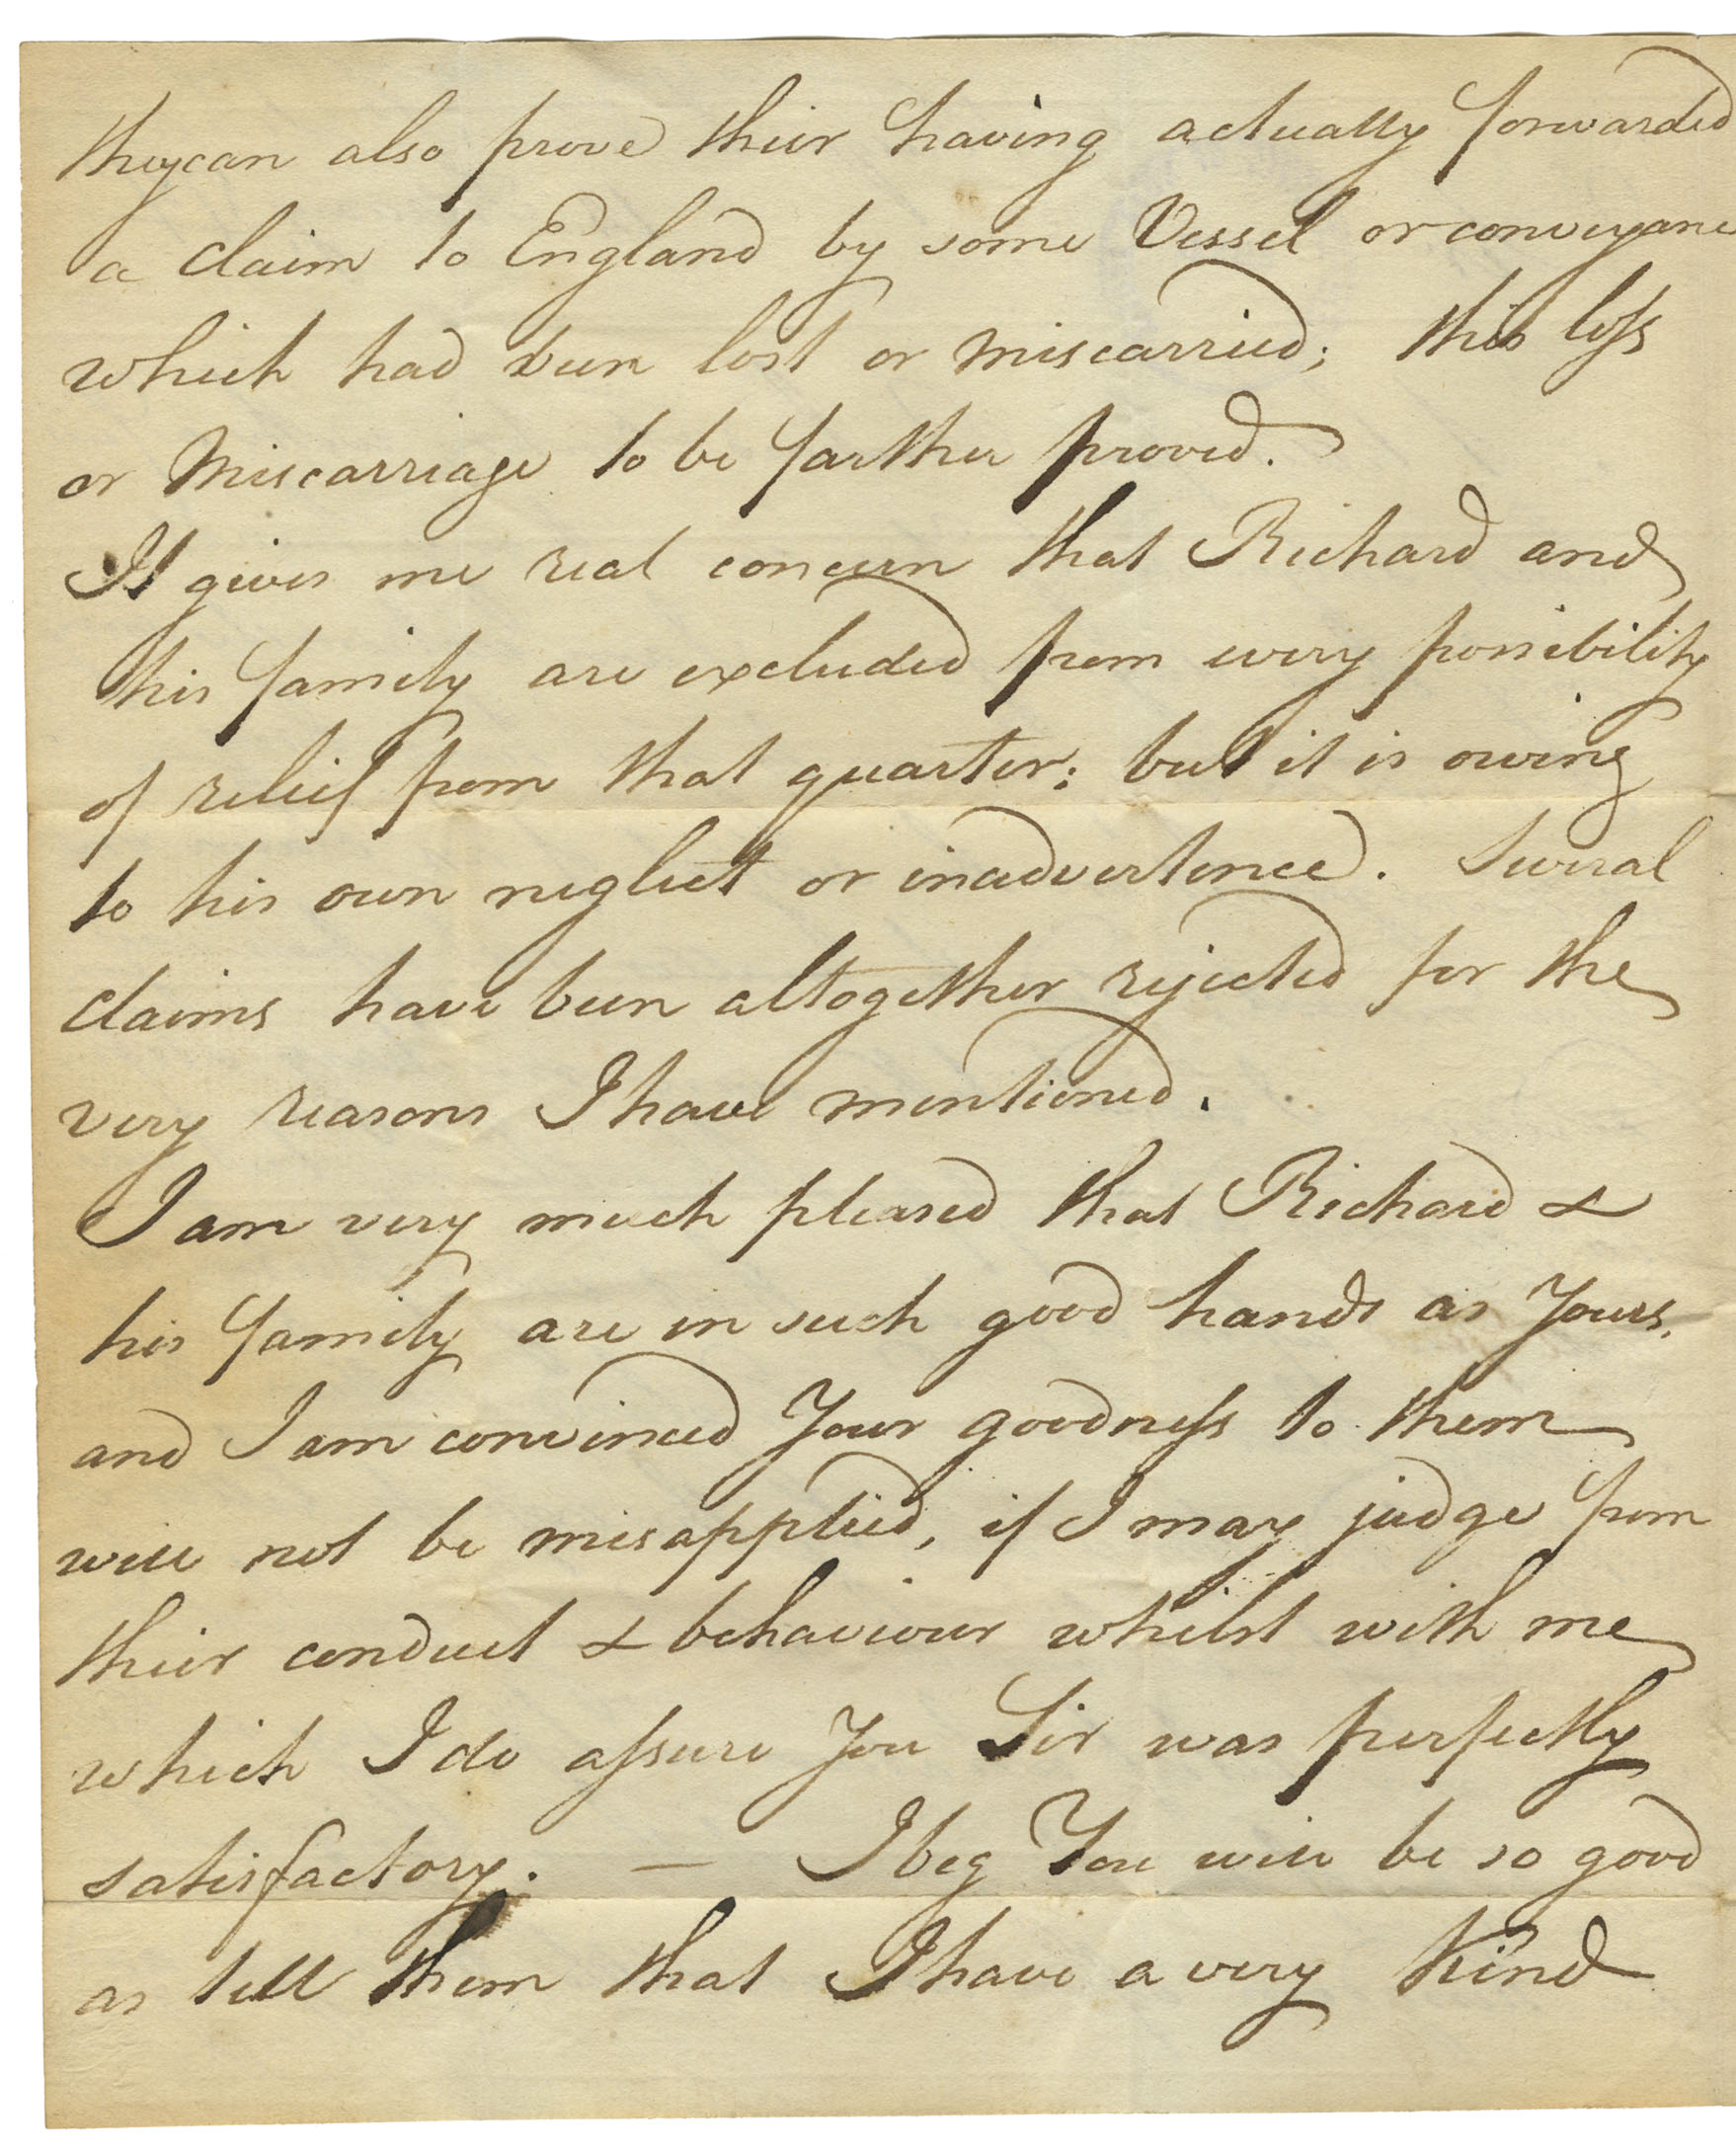 they can also prove their having actually forwarded
a claim to England by some Vessel or conveyance
which had been lost or miscarried; this loſs
or Miscarriage to be farther proved.
It gives me real concern that Richard and
his family are excluded from every possibility
of relief from that quarter: but it is owing
to his own neglect or inadvertence. Several
claims have been altogether rejected for the
very reasons I have mentioned.
I am very much pleased that Richard &
his family are in such good hands as Yours,
and I am convinced Your goodneſs to them
will not be misapplied, if I may judge from
their conduct & behaviour whilst with me
which I do aſsure You Sir was perfectly
satisfactory. — I beg You will be so good
as tell them that I have a very kind